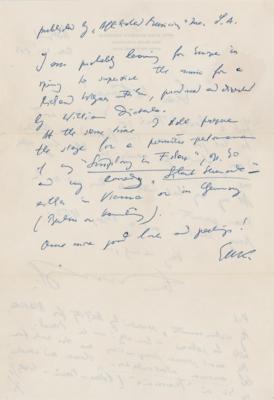 published by "Affiliated Musicians" Inc. L.A.
I am probably leaving for Europe in
spring to supervise the music for a
Richard Wagner Film, produced and directed
by William Dieterle.
At the same time I shall prepare
the stage for a première performance
of my "Symphony in F sharp", op. 40
and my comedy, "Silent Serenade"
either in Vienna or in Germany
(Berlin or
Once more good luck and greetings!